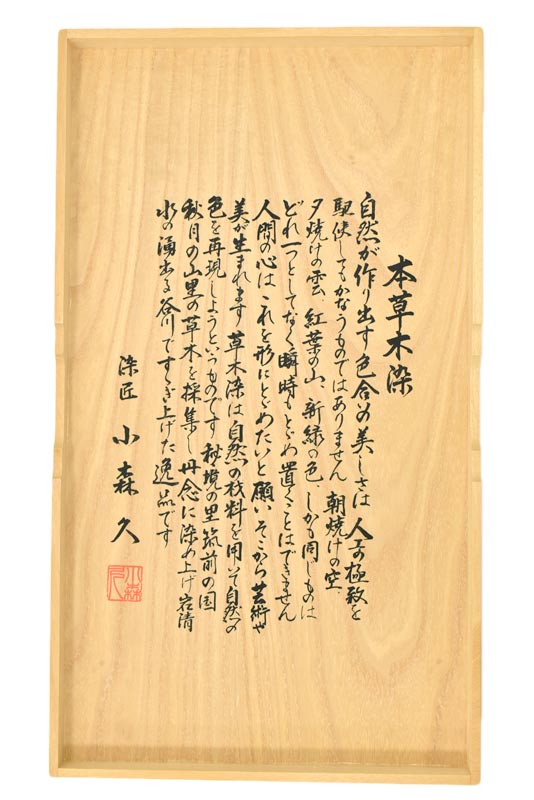 本草木染
自然が作り出す色合いの美しさは 人工の極致を
駆使してもかなうものではありません 朝焼けの空、
夕焼けの雲、紅葉の山、新緑の色、しかも同じものは
どれ一つとしてなく瞬時もとどめ置くことはできません
人間の心はこれを形にとどめたいと願いそこから芸術や
美が生まれます 草木染は自然の材料を用いて自然の
色を再現しようというものです 秘境の里筑前の国
秋月の山里の草木を採集し丹念に染め上げ岩清
水の湧出る谷川ですすぎ上げた逸品です
染匠 小森久
小森久